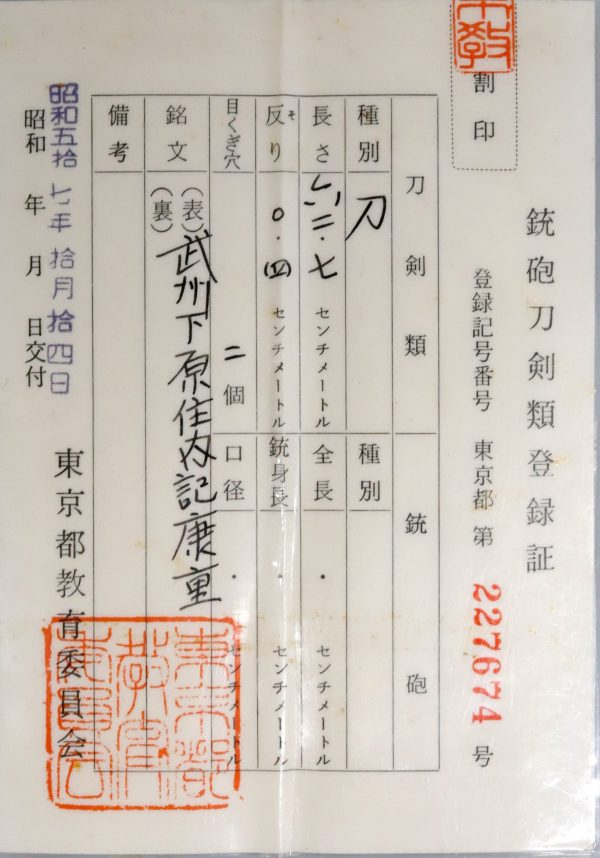 割印
銃砲刀剣類登録証
登録記号番号 東京都 第 227674 号
刀剣類
銃砲
種別 刀
種別
長さ 六二・七 センチメートル
全長 ・ センチメートル
反り そ 〇・四 センチメートル
銃身長 ・ センチメートル
目くぎ穴 二個
口径 ・ センチメートル
銘文 (表) 武州下原住内記康重
(裏)
備考
昭和五拾七年拾月拾四日
昭和 年 月 日交付
東京都教育委員会